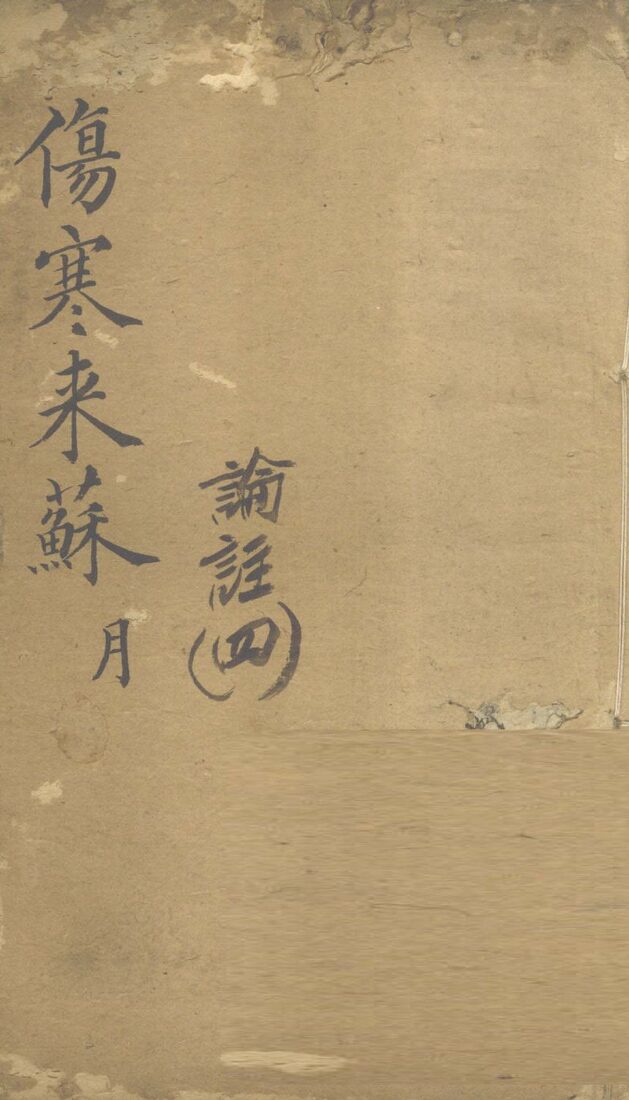 傷寒来蘇
月
論註(四)